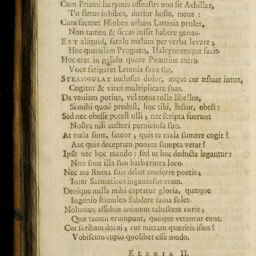 Cum Priami lacrymis offensus non sit Achilles,
Tu fletus inhibes, durior hoste, meos?
Cum faceret Nioben orbam Latonia proles,
Non tamen & siccas jussit habere genas.
EST aliquid, fatale malum per verba levare;
Hoc querulam Prognen, Halcyonemque facit.
Hoc erat in gelido quare Pœantius antro
Voce fatigaret Lemnia saxa sua.
STRANGULAT inclusus dolor, atque cor æstuat intus,
Cogitur & vires multiplicare suas.
Da veniam potius, vel totos tolle libellos,
Si mihi quod prodest, hoc tibi, lector, obest:
Sed nec obesse potest ulli; nec scripta fuerunt
Nostra nisi auctori perniciosa suo.
At mala sunt, fateor, quis te mala sumere cogit?
Aut quis deceptum ponere sumpta vetat?
Ipse nec hoc mando: sed ut huc deducta legantur:
Non sunt illa suo barbariora loco.
Nec me Roma suis debet conferre poetis;
Inter Sarmaticos ingeniosus eram.
Denique nulla mihi captatur gloria, quæque
Ingenio stimulos subdere fama solet.
Nolumus assiduis animum tabescere curis;
Quæ tamen erumpunt, quoque vetantur eunt.
Cur scribam docui; cur mittam quæritis istos?
Vobiscum cupio quolibet esse modo.
ELEGIA II.